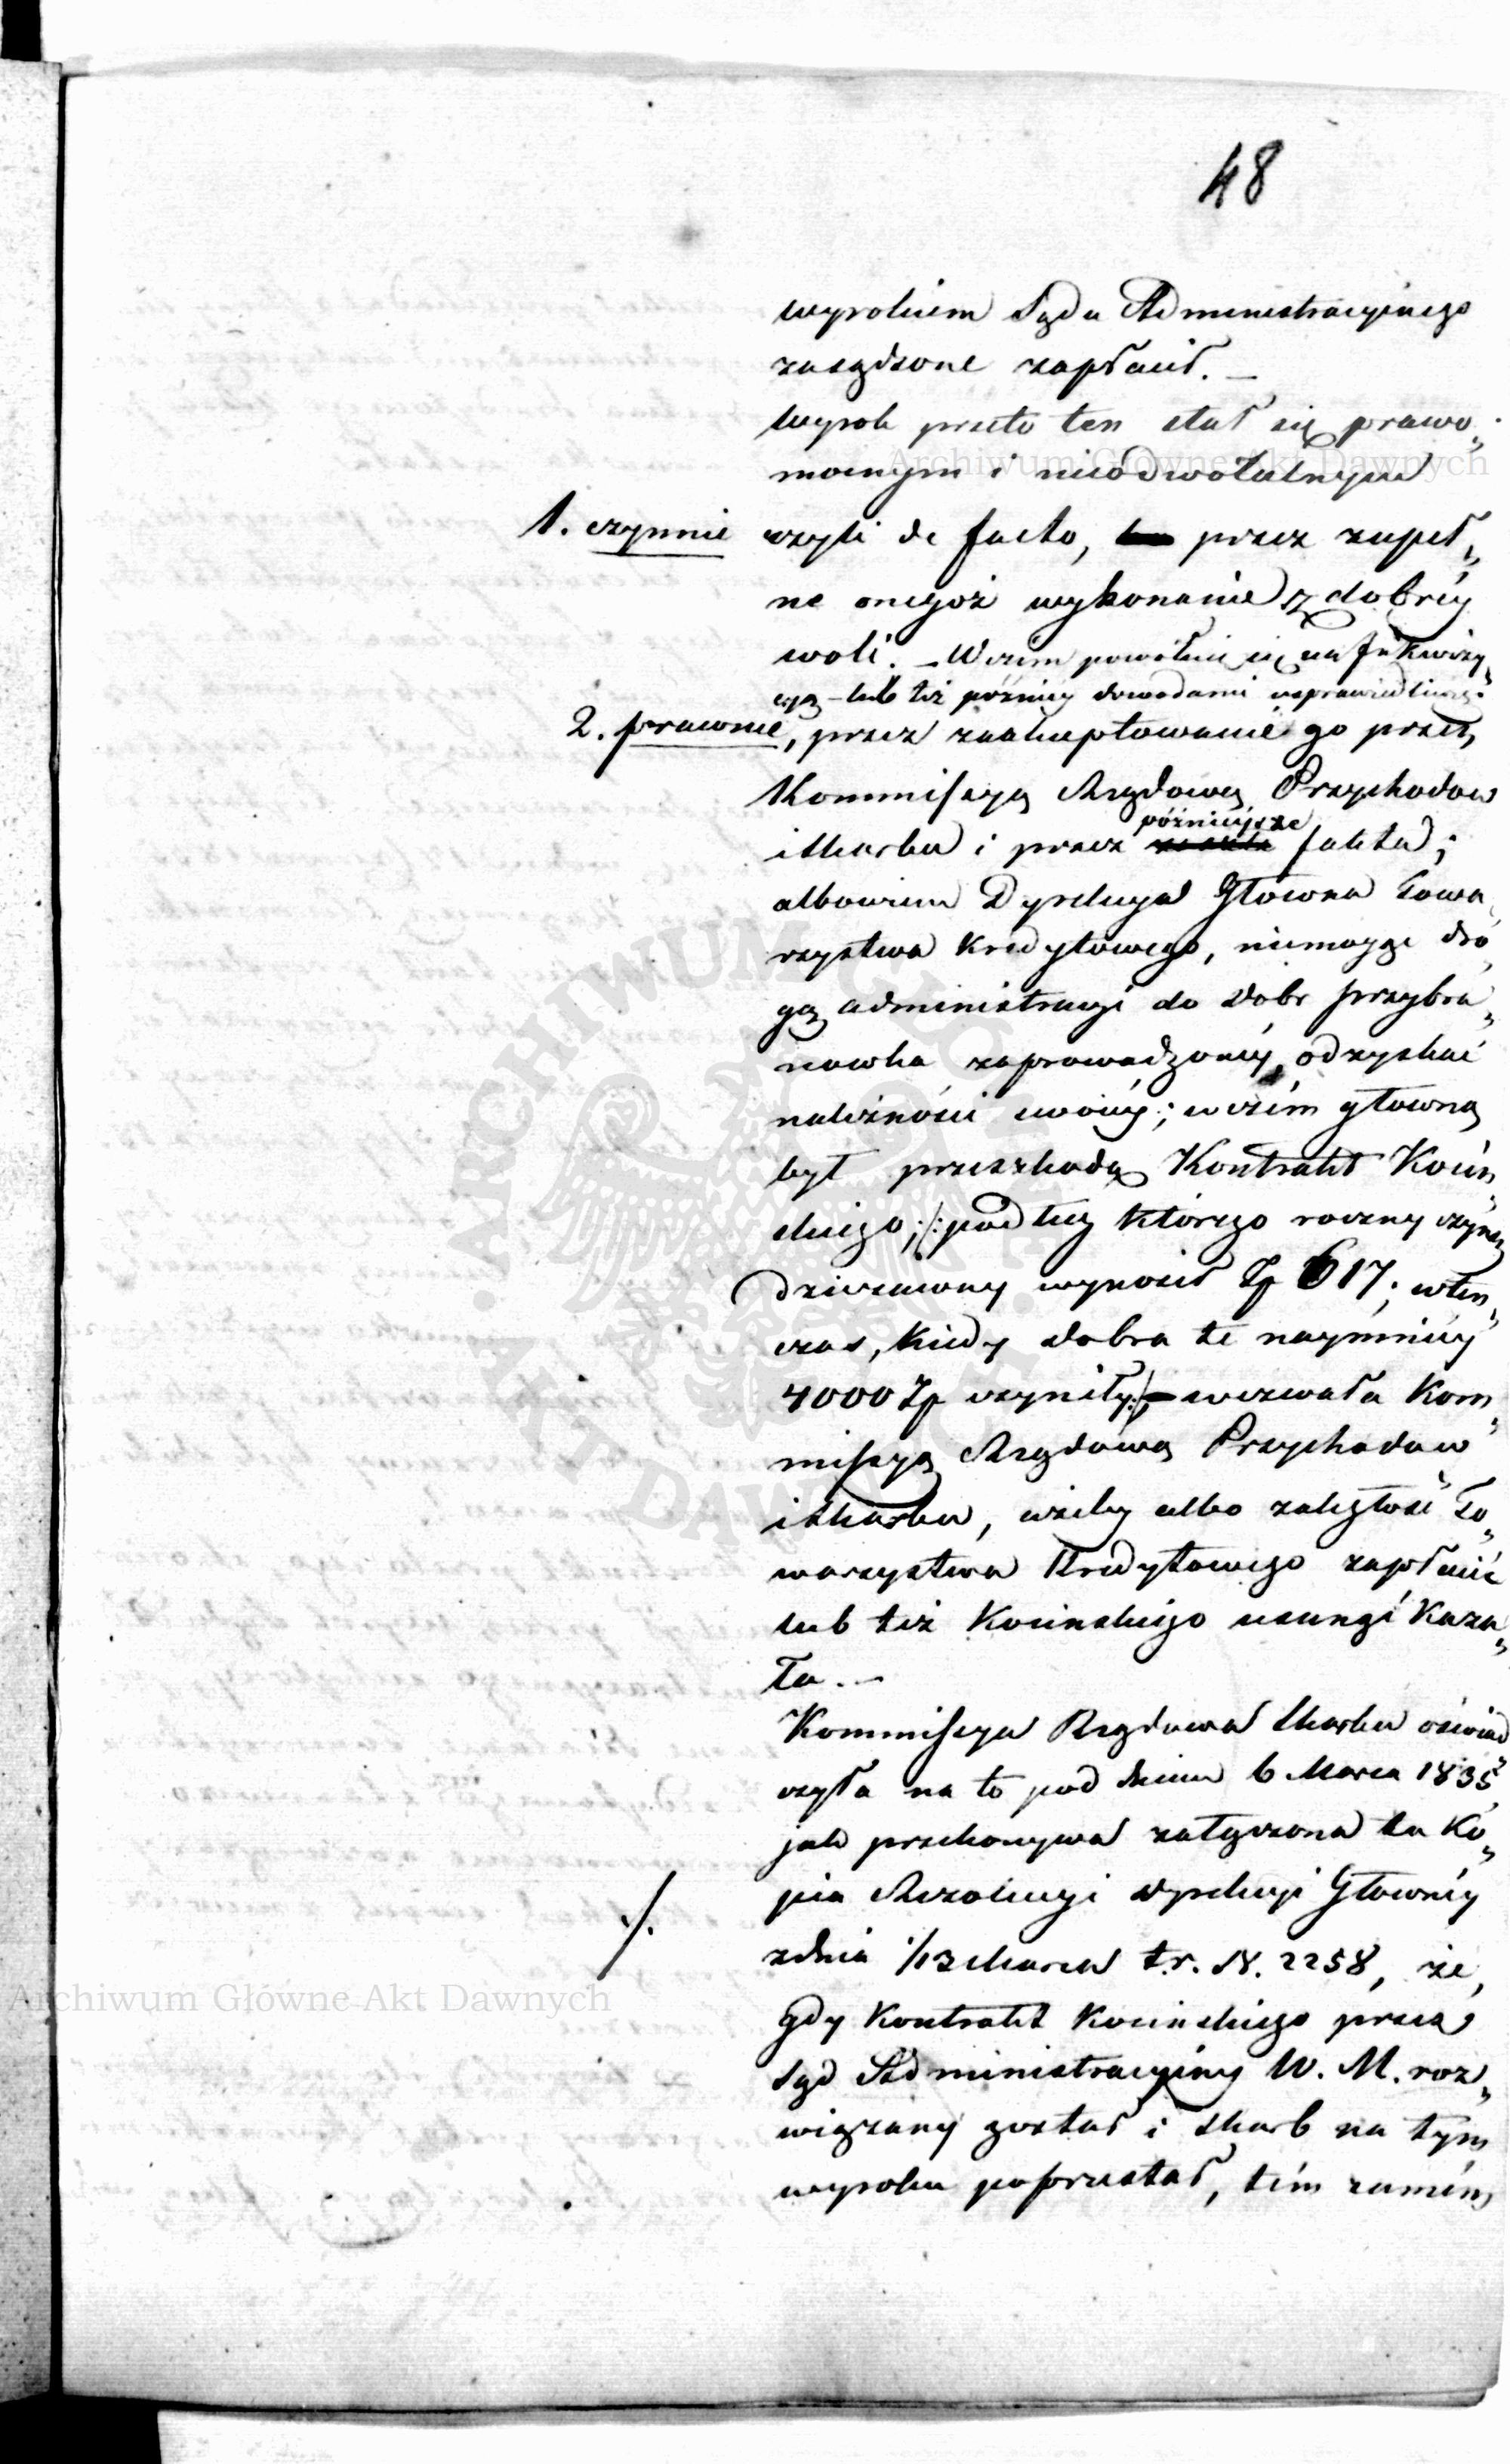 48
wyrokiem Sądu Administracyinego
zasądzone zapłacił. —
Wyrok przeto ten stał się prawo„
mocnym i nieodwołalnym
1. czynnie czyli de facto, przez zupeł„
ne onegoż wykonanie z dobréy
woli. — W czém powołuie się na Inkwizy„
cyą — lub też późniey dowodami usprawiedliwię.
2. prawnie, przez zaakceptowanie go przez
Kommissyą Rządową Przychodow
i Skarbu i przez późnieysze fakta;
albowiem Dyrekcya Główna Towa„
rzystwa Kredytowego, niemogąc dro„
gą administracyi do dobr Przybra„
nowka zaprowadzoney, odzyskać
należności swoiéy; w czém główną
był przeszkodą Kontrakt Kociń„
skiego; /: podług którego roczny czynsz
dzierzawny wynosił Zp 617; wten„
czas, kiedy dobra te naymniéy
4000 Zp czyniły :/ — wezwała Kom„
missyą Rządową Przychodow
i Skarbu, ażeby albo zaległość To„
warzystwa Kredytowego zapłacić
lub też Kocinskiego usunąć kaza„
ła. —
Kommissya Rządowa Skarbu oświad„
czyła na to pod dniem 6 Marca 1835,
jak przekonywa załączona tu Ko„
pia Rezolucyi Dyrekcyi Głównéy
./. z dnia 1/13 Marca t.r. N. 2258, że,
gdy Kontrakt Kocinskiego przez
Sąd Administracyiny W. M. roz„
wiązany został i Skarb na tym
wyroku poprzestał, tém samém
Archiwum Główne Akt Dawnych
Archiwum Główne Akt Dawnych
ARCHIWUM GŁÓWNE AKT DAWNYCH